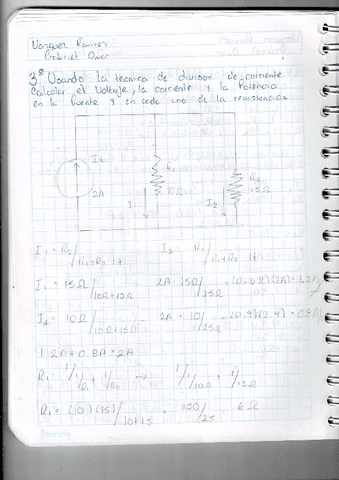 Vazquez Ramirez
Gabriel Omar
3º Usando la tecnica de divisor de corriente
Calcular el Voltaje, la corriente y la Potencia
en la fuente y en cada uno de la resistencias
It
2A
R1
10Ω
I1
I2
R2
15Ω
I1 = R2/R1+R2 It I2 = R1/R1+R2 It
I1 = 15Ω/10Ω+15Ω 2A = 15Ω/25Ω = (0.6Ω)(2A) = 1.2A
I2 = 10Ω/10Ω+15Ω 2A = 10/25Ω = (0.4)(0.4) = 0.8A
1.2A + 0.8A = 2A
R1 = 1/1/R1 + 1/R2 → 1/1/10Ω + 1/15Ω
R1 = (10)(15)/10+15 = 150/25 = 6Ω